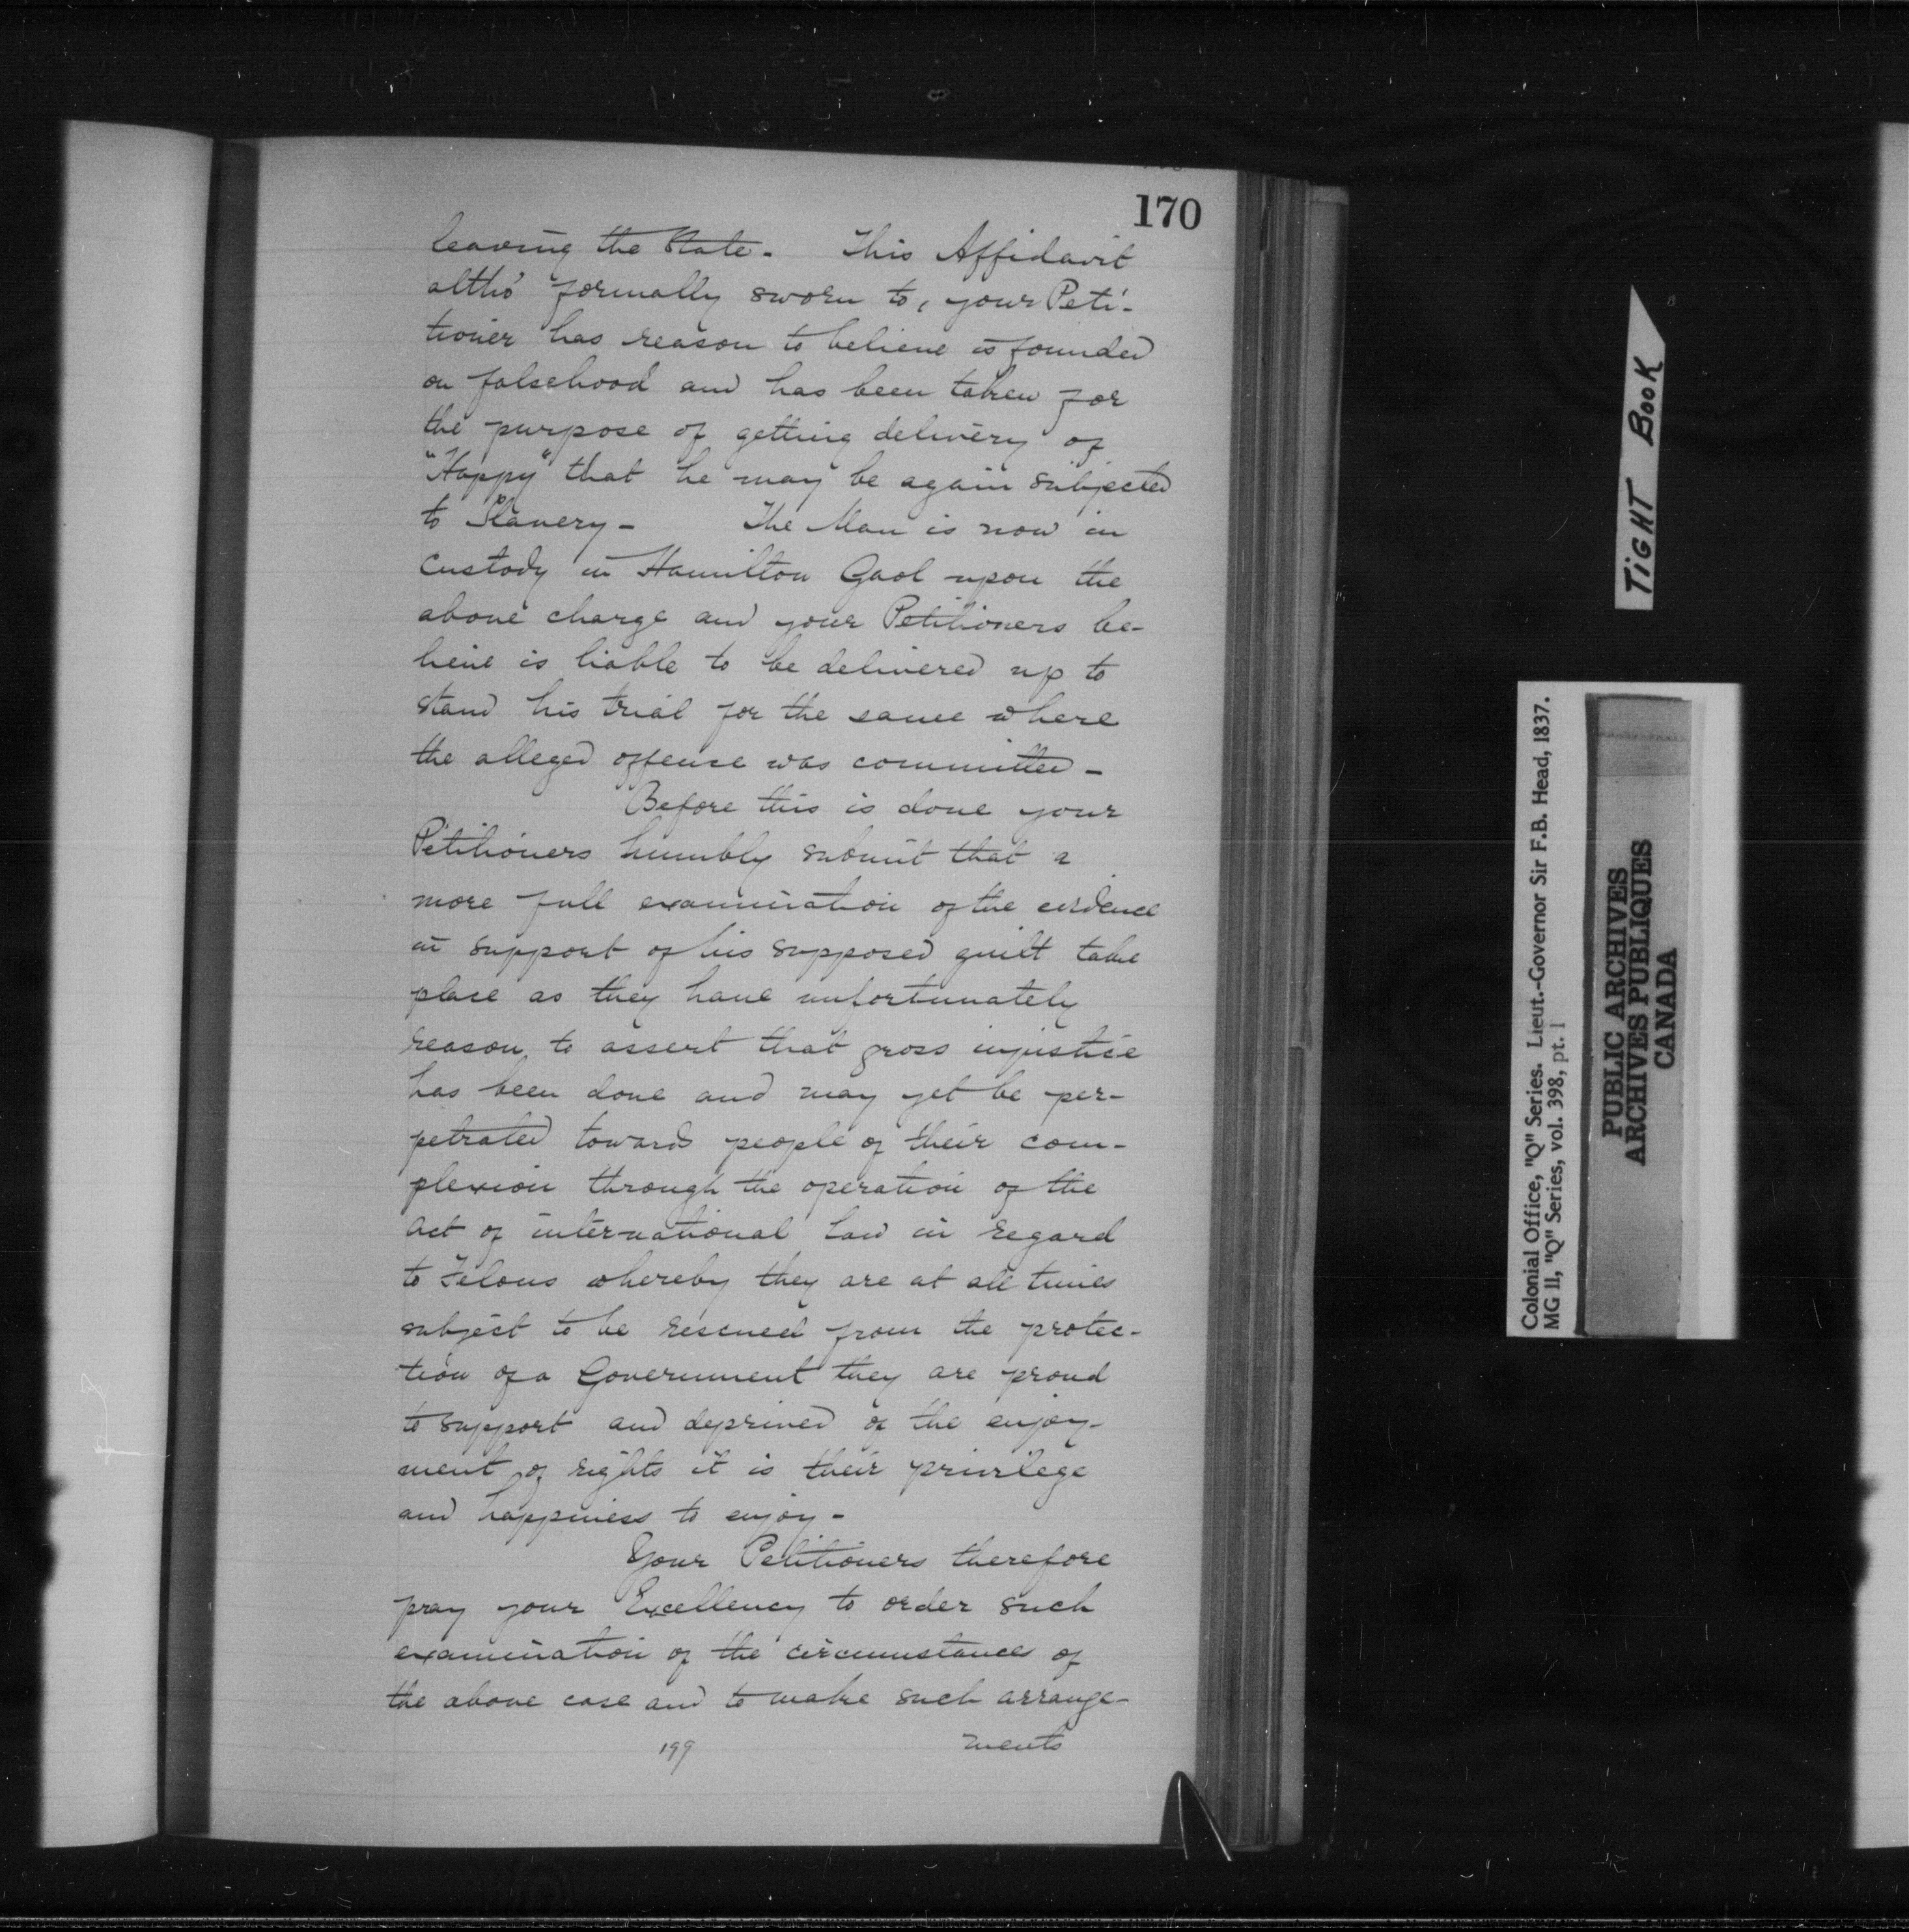 170
leaving the State - This Affidavit
altho' formally sworn to, your Peti-
tioner has reason to believe is founded
on falsehood and has been taken for
the purpose of getting delivery of
"Happy" that he may be again subjected
to Slavery - The Man is now in
custody in Hamilton Gaol upon the
above charge and your Petitioners be-
lieve is liable to be delivered up to
stand his trial for the same where
the alleged offence was committed -
Before this is done your
Petitioners humbly submit that a
more full examination of the evidence
in support of his supposed guilt take
place as they have unfortunately
reason, to assert that gross injustice
has been done and may yet be per-
petrated towards people of their com-
plexion through the operation of the
Act of international Law in regard
to Felons whereby they are at all times
subject to be rescued from the protec-
tion of a Government they are proud
to support and deprived of the enjoy-
ment of rights it is their privilege
and happiness to enjoy -
Your Petitioners therefore
pray your Excellency to order such
examination of the circumstances of
the above case and to make such arrange-
ments
199
TIGHT BOOK
Colonial Office, "Q" Series. Lieut.-Governor Sir F.B. Head, 1837.
MG 11, "Q" Series, vol. 398, pt. 1
PUBLIC ARCHIVES
ARCHIVES PUBLIQUES
CANADA